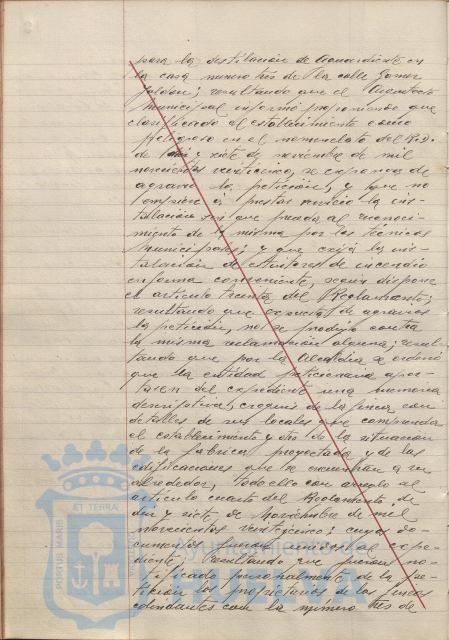 para la destilación de aguardiente en
la casa número tres de la calle Gomez
Jaldon; resultando que el Arquitecto
Municipal informó proponiendo que
clasificado el establecimiento como
peligroso en el nomenclator del R.D.
de diez y siete de noviembre de mil
novecientos veinticinco, se exponga de
agravio la petición, y que no
empiece a prestar servicio la ins-
talación sin que preceda al reconoci-
miento de la misma por los técnicos
municipales; y que exija la ins-
talación de extintores de incendio
en forma conveniente, según dispone
el artículo treinta del Reglamento;
resultando que expuesta de agravios
la petición, no se produjo contra
la misma reclamación alguna; resul-
tando que por la Alcaldía se ordenó
que la entidad peticionaria apor-
tasen del expediente una memoria
descriptiva, croquis de la finca con
detalles de sus locales que comprenda
el establecimiento y otro de la situación
de la fábrica proyectada y de las
edificaciones que se encuentran a su
alrededor, todo ello con arreglo al
artículo cuarto del Reglamento de
diez y siete de Noviembre de mil
novecientos veinticinco; cuyos do-
cumentos fueron unidos al expe-
diente; resultando que fueron no-
tificado personalmente de la pe-
tición los propietarios de las fincas
colindantes con la número tres de
PORTUS MARIS
ET TERRAE
Ayuntamiento de
HUELVA